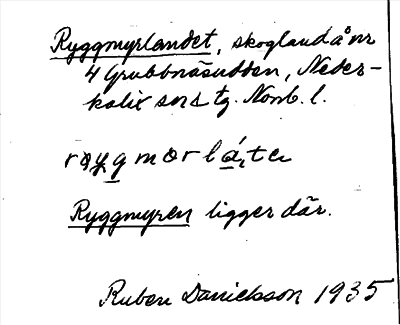 Ryggmyrlandet, skogland å nr
4 Grubbnäsudden, Neder-
kalix sns tg. Norrb. l.
Ryggmyren ligger där.
Ruben Danielsson 1935